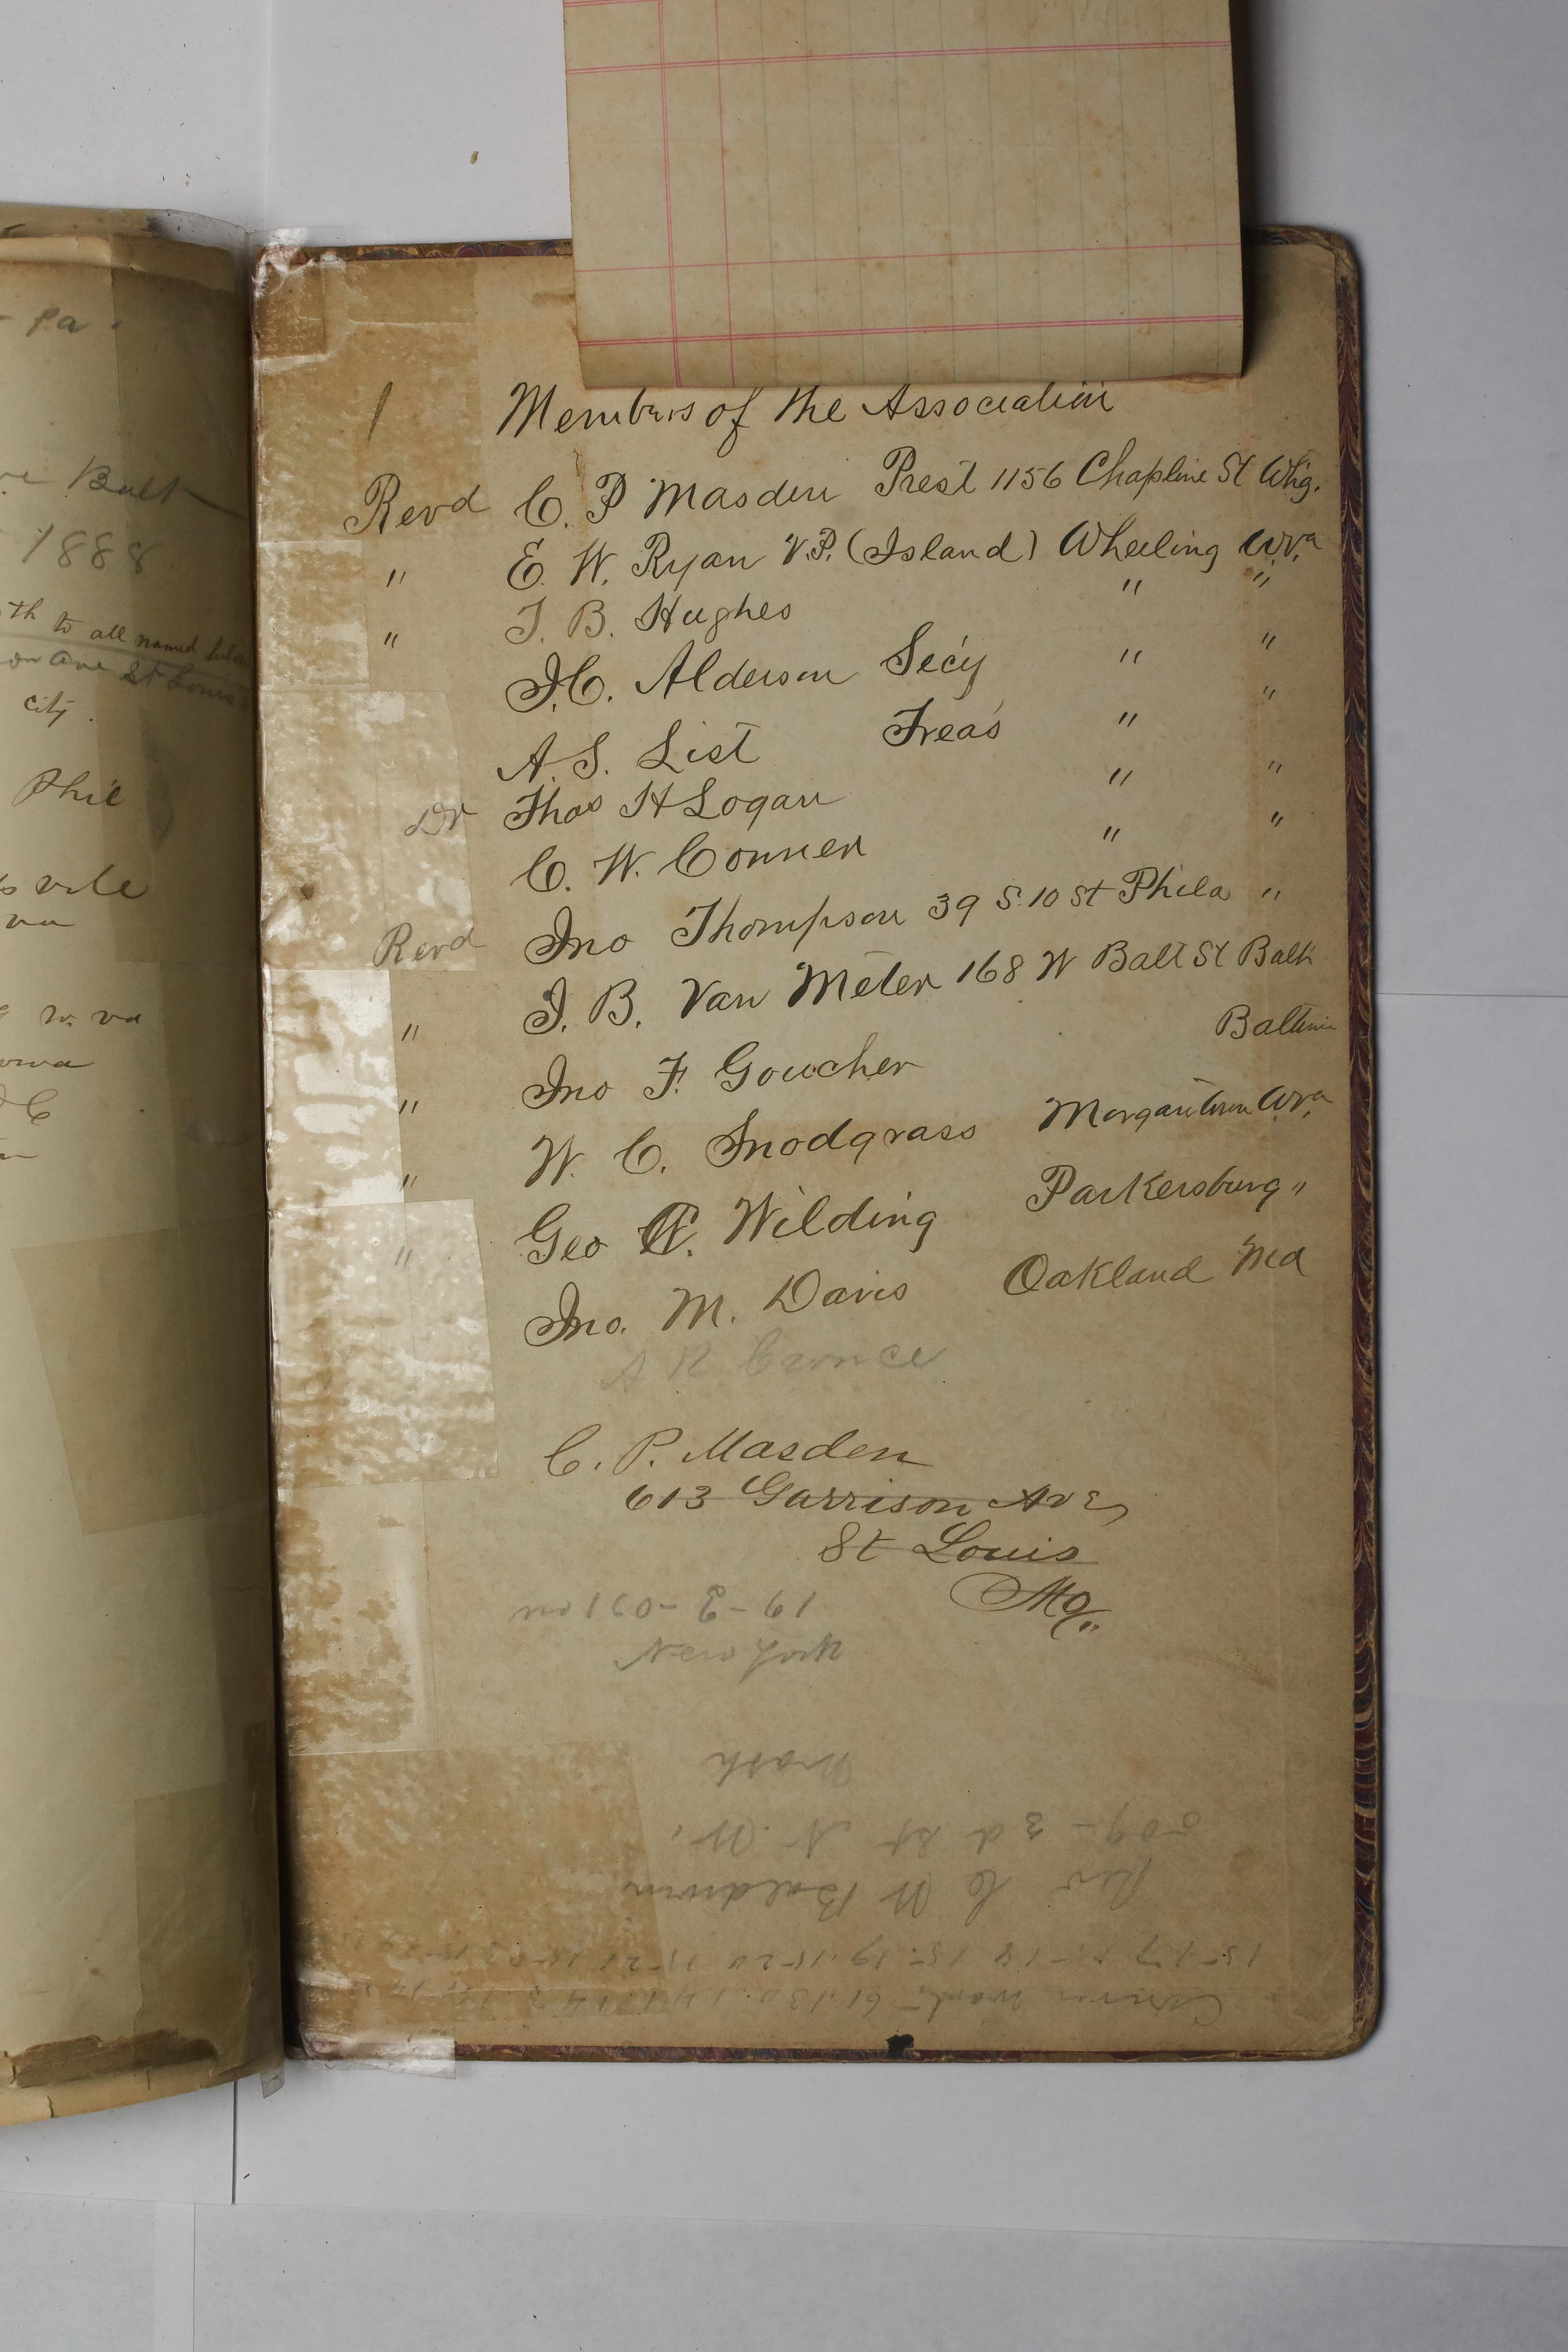 - Pa.
Balt
1888
th to all named below
on ave St Louis
city.
Phil
va
w. va
1 Members of the Association
Revd C. P Masden Prest 1156 Chapline St Whg.
" E. W. Ryan V.P. (Island) Wheeling Wva
" T. B. Hughes " "
J. C. Alderson Secy " "
A. S. List Treas " "
Dr Thos H Logan " "
C. W. Conner " "
Revd Jno Thompson 39 S. 10 St Phila "
" J. B. Van Meter 168 W Balt St Balt
" Jno F. Goucher Baltimo
" W. C. Snodgrass Morgantown Wva
" Geo C. Wilding Parkersburg "
Jno. M. Davis Oakland Md
C. P. Masden
613 Garrison Ave,
St Louis
Mo.
New York
Wash
509 - 3d St N. W.
Rev C W Baldwin
15-17 15-18 15-19 15-20 15-21